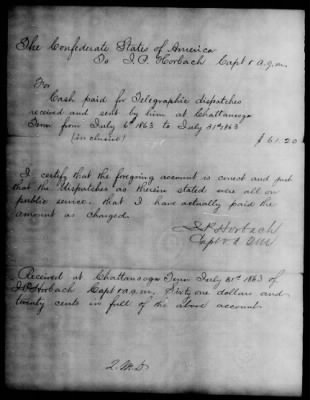 The Confederate States of America
To J.P. Horbach Capt & A.Q.M.
For
Cash paid for Telegraphic dispatches
received and sent by him at Chattanooga
Tenn from July 6th 1863 to July 31st 1863
(inclusive) $ 61.20
I certify that the foregoing account is correct and just
that the dispatches as therein stated were all on
public service. that I have actually paid the
amount as charged.
J P Horbach
Capt & A Q M
Received at Chattanooga Tenn July 31st 1863 of
J P Horbach Capt & A.Q.M. Sixty one dollars and
twenty cents in full of the above account